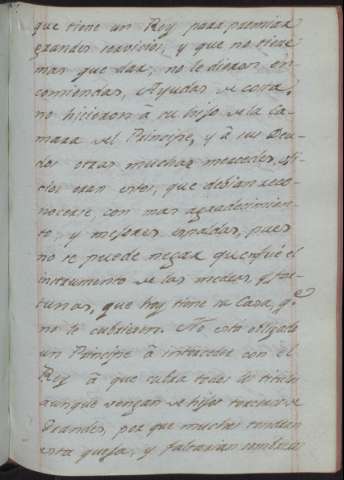 que tiene un Rey para premiar
grandes servicios, y que no tiene
mas que dar; no le dieron en-
comiendas, Ayudas de costa,
no hicieron à su hijo de la Ca-
mara del Principe, y à sus Deu-
dos otras muchas mercedes,
eran estos, que debian reco-
nocerse con mas agradecimien-
to, y mejores pues
no se puede negar que fué el
instrumento de las medras y for-
tunas, que hoy tiene su Casa, q.e
no le cubrieron. No està obligado
un Principe à interceder con el
Rey à que cubra todos los titulos
aunque vengan de hijos terceros de
Grandes, por que muchos tendrian
esta queja, y faltarian